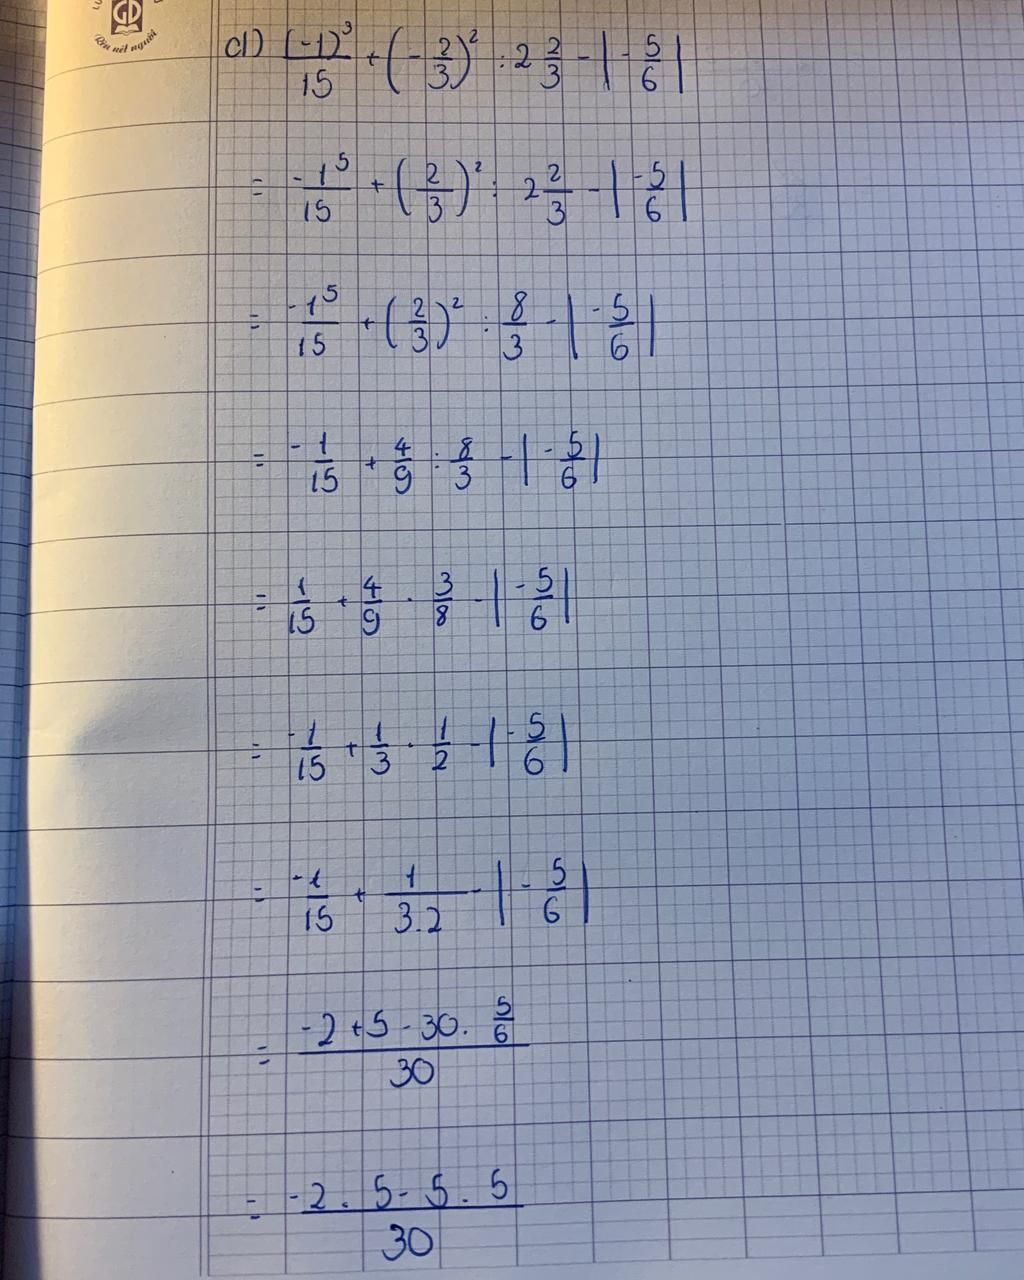 GD
Rèn nét người
d) (-1)³/15 + (-2/3)² : 2 2/3 - |-5/6|
= -1⁵/15 + (2/3)² : 2 2/3 - |-5/6|
= -1⁵/15 + (2/3)² : 8/3 - |-5/6|
= -1/15 + 4/9 : 8/3 - |-5/6|
= 1/15 + 4/9 . 3/8 - |-5/6|
= -1/15 + 1/3 . 1/2 - |-5/6|
= -1/15 + 1/3.2 - |-5/6|
= -2 + 5 - 30. 5/6 / 30
= -2 . 5 - 5 . 5 / 30